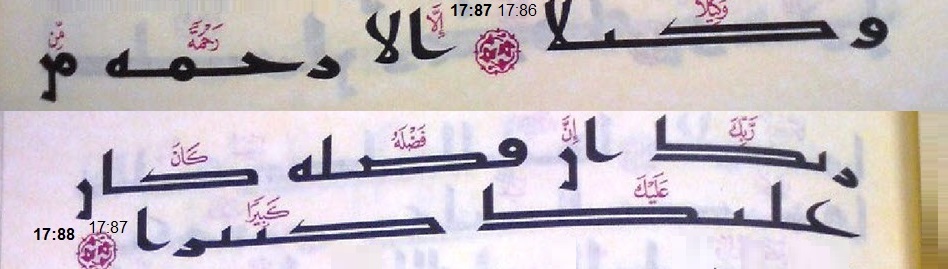 وَكِيلًا 17:86 17:87 إِلَّا رَحْمَةً مِّن
وكىلا الا رحمه من
رَّبِّكَ إِنَّ فَضْلَهُ كَانَ
ربك ان فضله كان
عَلَيْكَ كَبِيرًا
علىك كبىرا 17:87 17:88